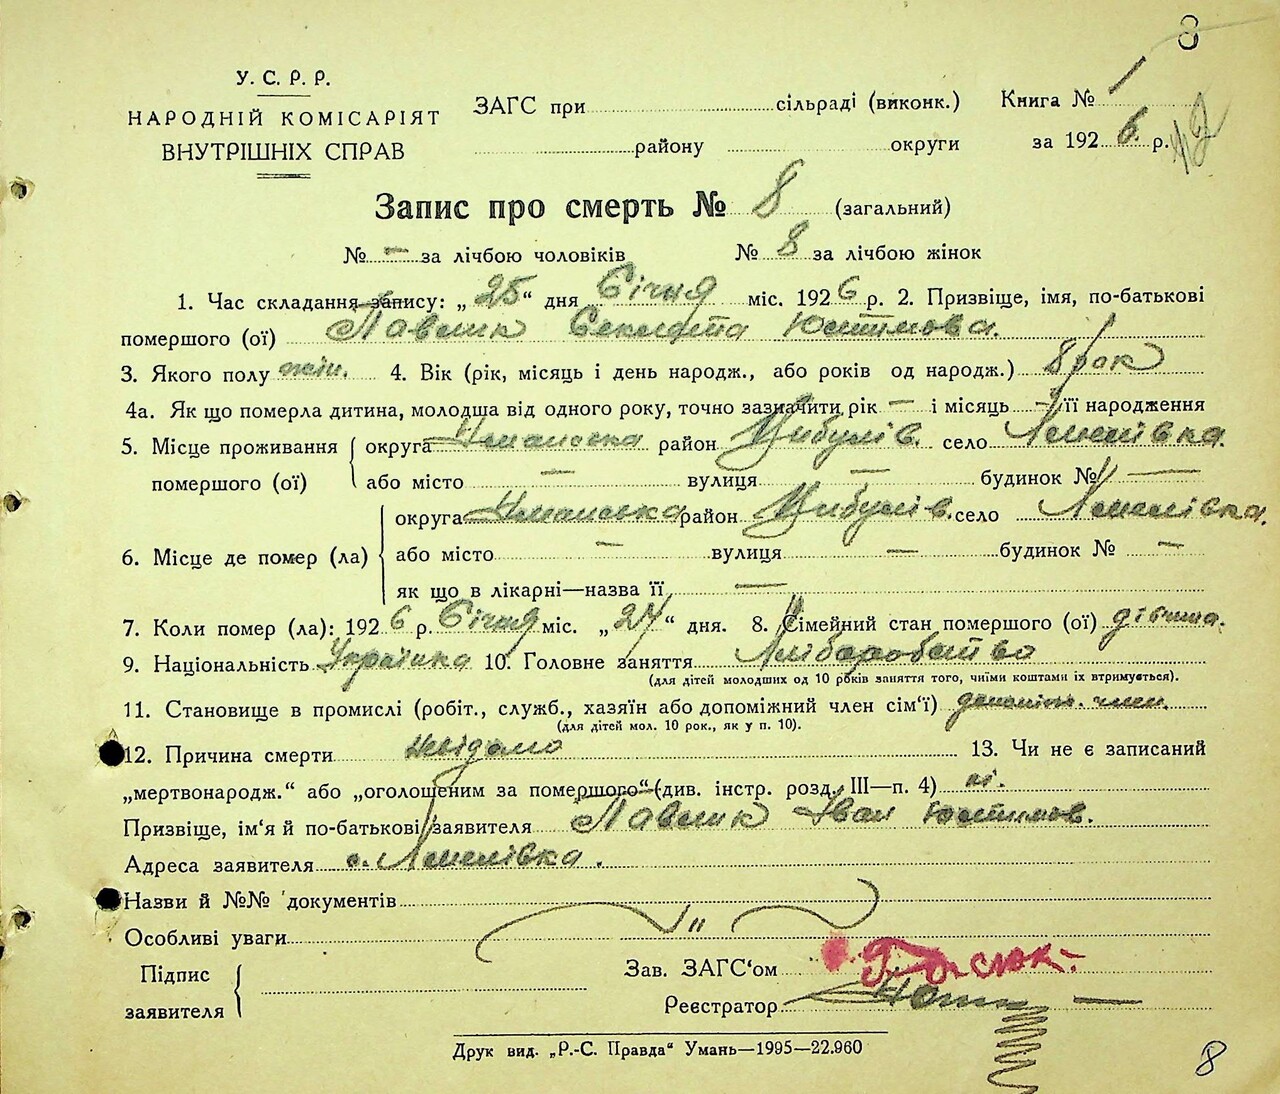 8
У. С. Р. Р.
НАРОДНІЙ КОМІСАРІЯТ
ВНУТРІШНІХ СПРАВ
ЗАГС при сільраді (виконк.)
району округи
Книга № 1
за 1926 р.
Запис про смерть № 8 (загальний)
№ — за лічбою чоловіків № 8 за лічбою жінок
1. Час складання запису: „25“ дня Січня міс. 1926 р. 2. Призвіще, імя, по-батькові
помершого (ої) Павлик Секлета Юхтимова.
3. Якого полу жін. 4. Вік (рік, місяць і день народж., або років од народж.) 8 рок
4а. Як що померла дитина, молодша від одного року, точно зазначити рік — і місяць — її народження
5. Місце проживання помершого (ої) округа Уманська район Цибулів. село
або місто — вулиця — будинок № —
6. Місце де помер (ла) округа Уманська район Цибулів. село
або місто — вулиця — будинок № —
як що в лікарні—назва її —
7. Коли помер (ла): 1926 р. Січня міс. „24“ дня. 8. Сімейний стан помершого (ої) дівчина.
9. Національність Українка 10. Головне заняття Хліборобство
(для дітей молодших од 10 років заняття того, чиїми коштами їх втримується).
11. Становище в промислі (робіт., служб., хазяїн або допоміжний член сім'ї) допоміж. член.
(для дітей мол. 10 рок., як у п. 10).
12. Причина смерти невідомо 13. Чи не є записаний
„мертвонародж.“ або „оголошеним за помершого“ (див. інстр. розд. III—п. 4) ні.
Призвіще, ім'я й по-батькові заявителя Павлик Іван Юхтимов.
Адреса заявителя с.
Назви й №№ документів
Особливі уваги
Підпис заявителя
Зав. ЗАГС'ом
Реєстратор
Друк вид. „Р.-С. Правда“ Умань—1995—22.960
8